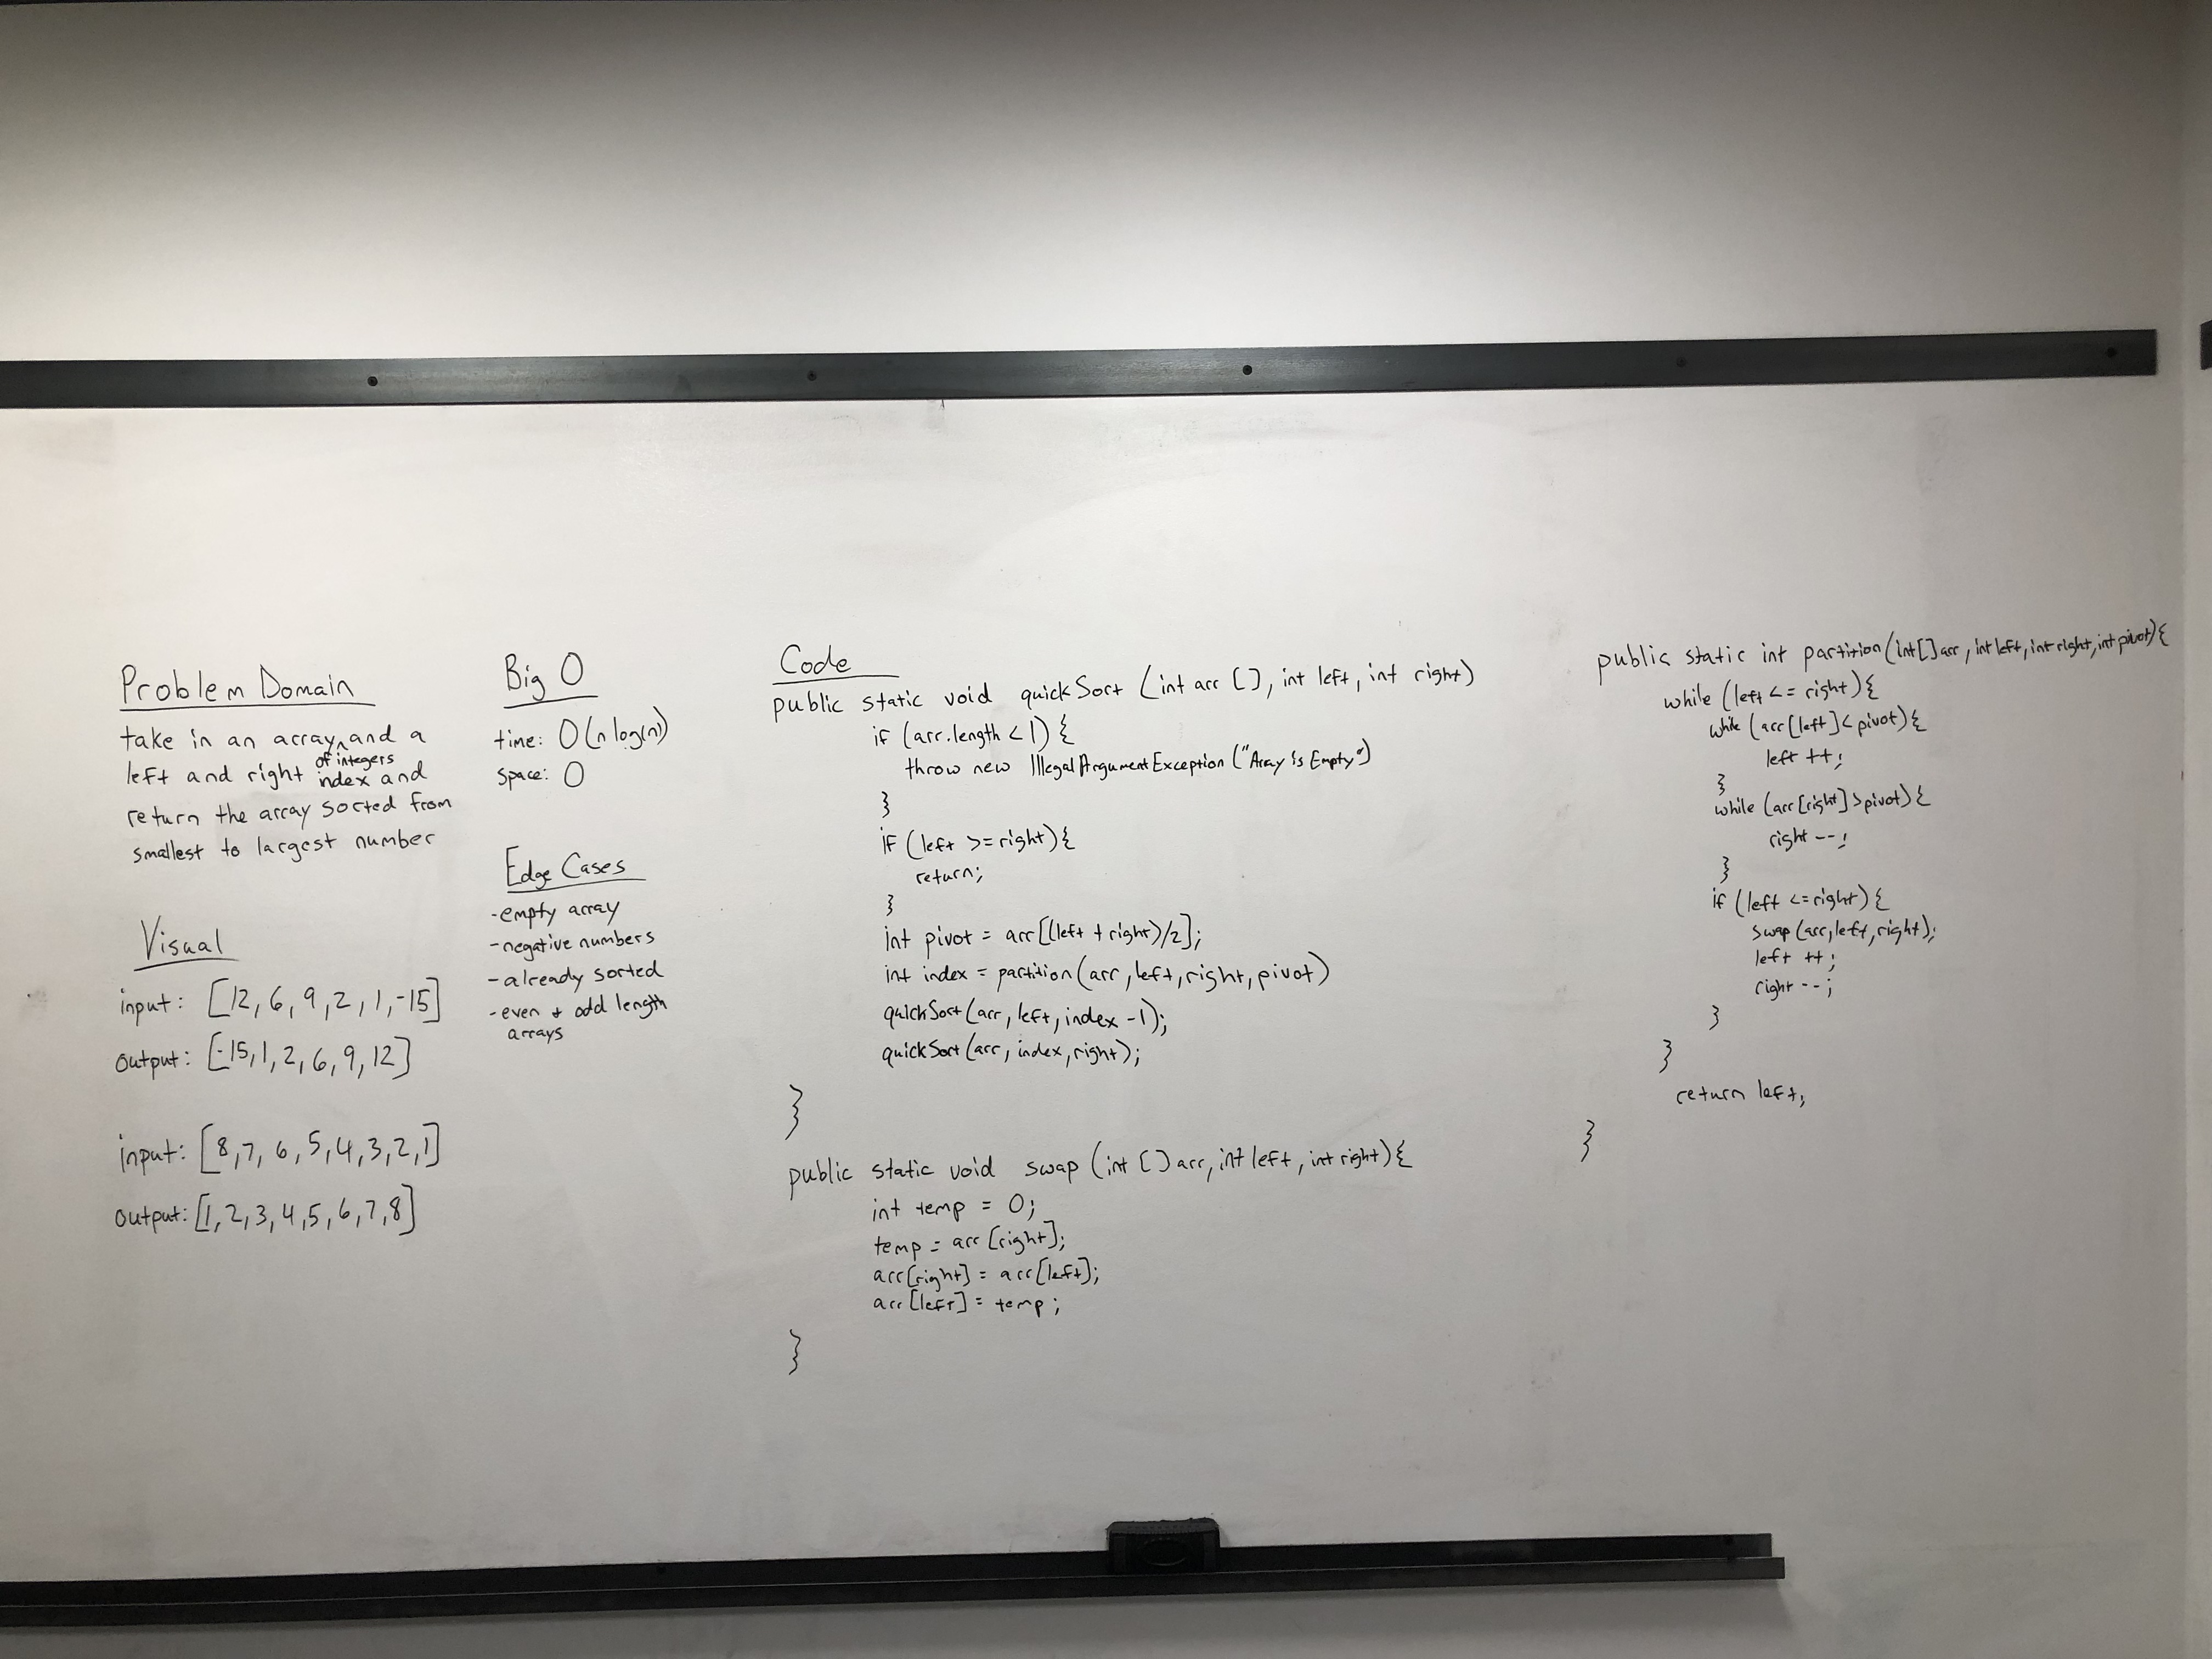 Problem Domain
take in an array ^ and a
of integers
left and right index and
return the array sorted from
smallest to largest number
Visual
input: [12, 6, 9, 2, 1, -15]
output: [-15, 1, 2, 6, 9, 12]
input: [8, 7, 6, 5, 4, 3, 2, 1]
output: [1, 2, 3, 4, 5, 6, 7, 8]
Big O
time: O(n log(n))
space: O
Edge Cases
- empty array
- negative numbers
- already sorted
- even + odd length
arrays
Code
public static void quickSort (int arr [], int left, int right)
if (arr.length < 1) {
throw new IllegalArgumentException ("Array is Empty")
}
if (left >= right) {
return;
}
int pivot = arr[(left + right)/2];
int index = partition(arr, left, right, pivot)
quickSort(arr, left, index -1);
quickSort(arr, index, right);
}
public static void swap (int [] arr, int left, int right) {
int temp = 0;
temp = arr [right];
arr[right] = arr[left];
arr[left] = temp;
}
public static int partition (int[] arr, int left, int right, int pivot) {
while (left <= right) {
while (arr[left] < pivot) {
left ++;
}
while (arr[right] > pivot) {
right --;
}
if (left <= right) {
swap (arr, left, right);
left ++;
right --;
}
}
return left;
}